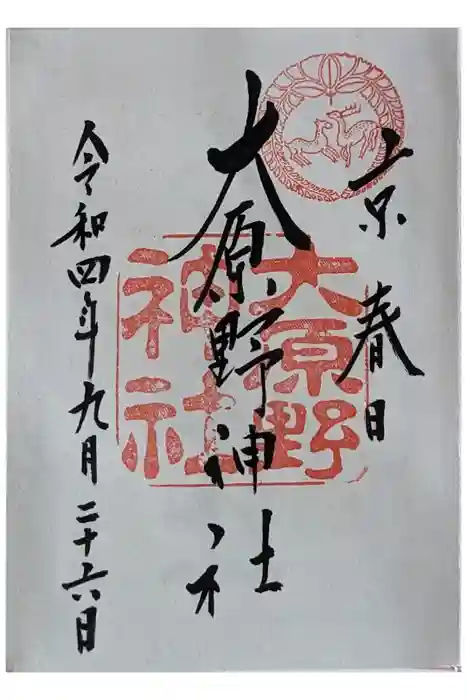 京春日
大原野神社
大原野
神社
令和四年九月二十六日